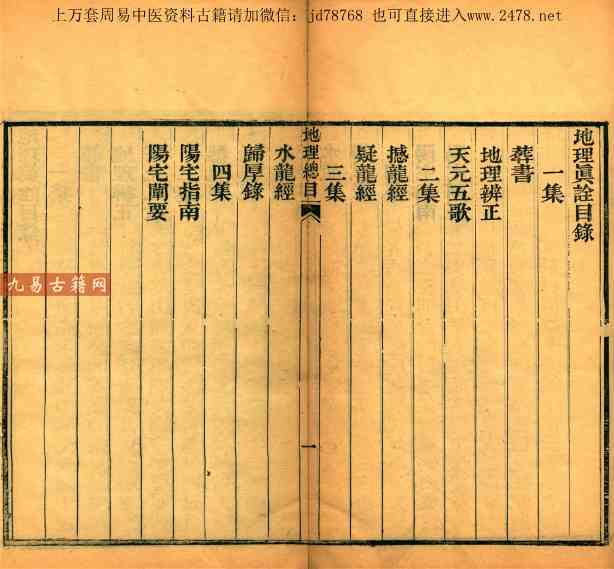 上万套周易中医资料古籍请加微信：jd78768 也可直接进入www.2478.net
地理眞詮目錄
一集
葬書
地理辨正
天元五歌
二集
撼龍經
疑龍經
三集
地理總目
一
水龍經
歸厚錄
四集
陽宅指南
陽宅闡要
九易古籍网